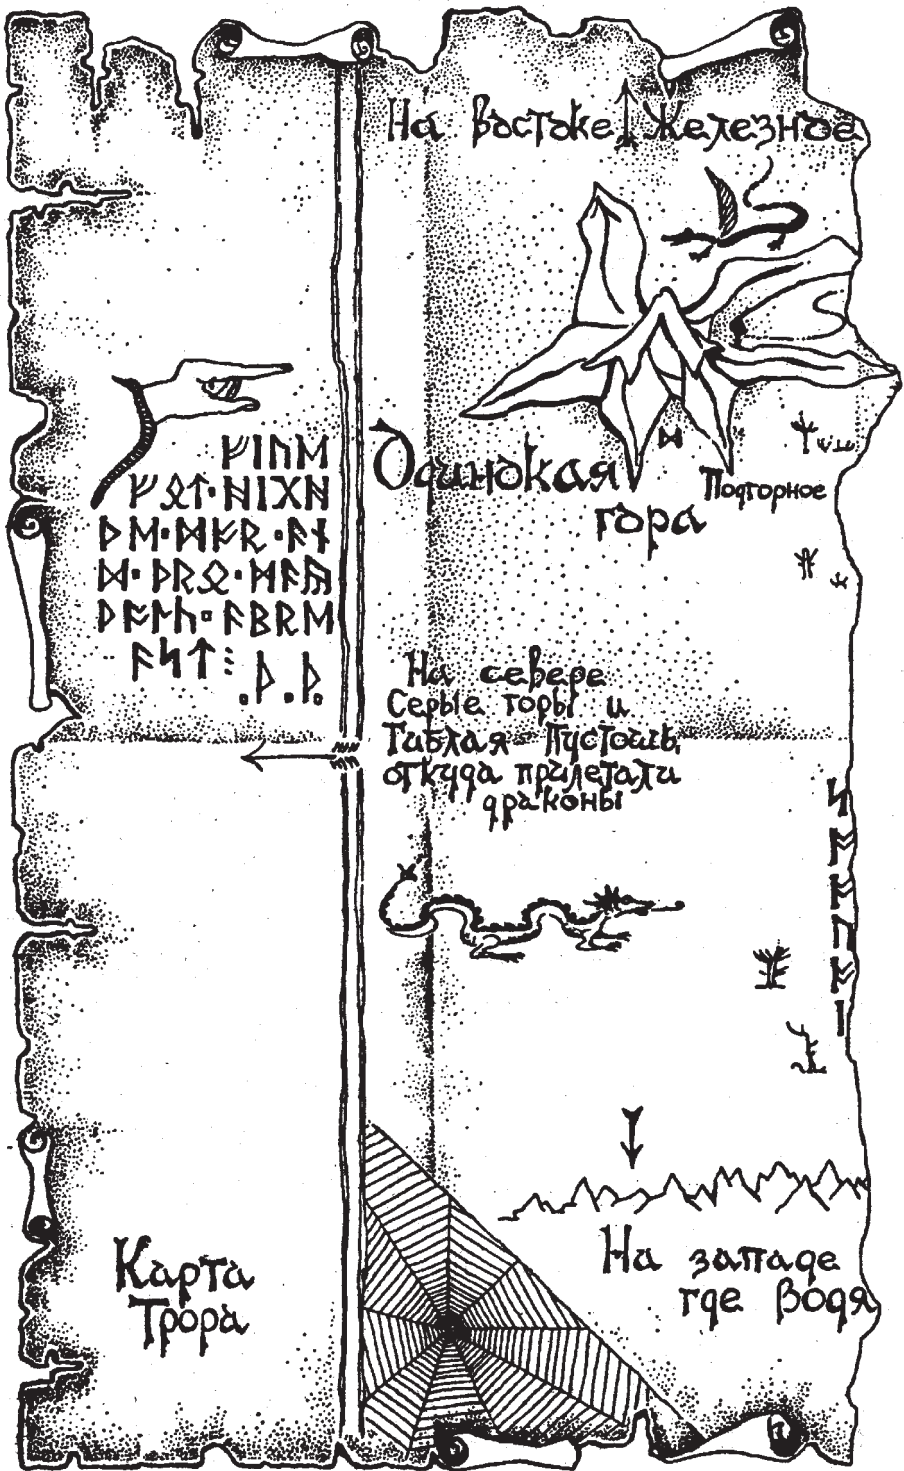 На востоке Железное
ᚠᛁᚢᛖ
ᚠᛟᛏ·ᚻᛁᚷᚻ
ᚦᛖ·ᛞᚩᚱ·ᚨᚾ
ᛞ·ᚦᚱᛟ·
ᚨᛒᚱᛖ
ᚨᛋᛏ⋮
.ᚦ.ᚦ.
ᛞ
Одинокая
гора
Подгорное
На севере
Серые горы и
Гиблая Пустошь,
откуда прилетали
драконы
На западе
где Водя
Карта
Трора